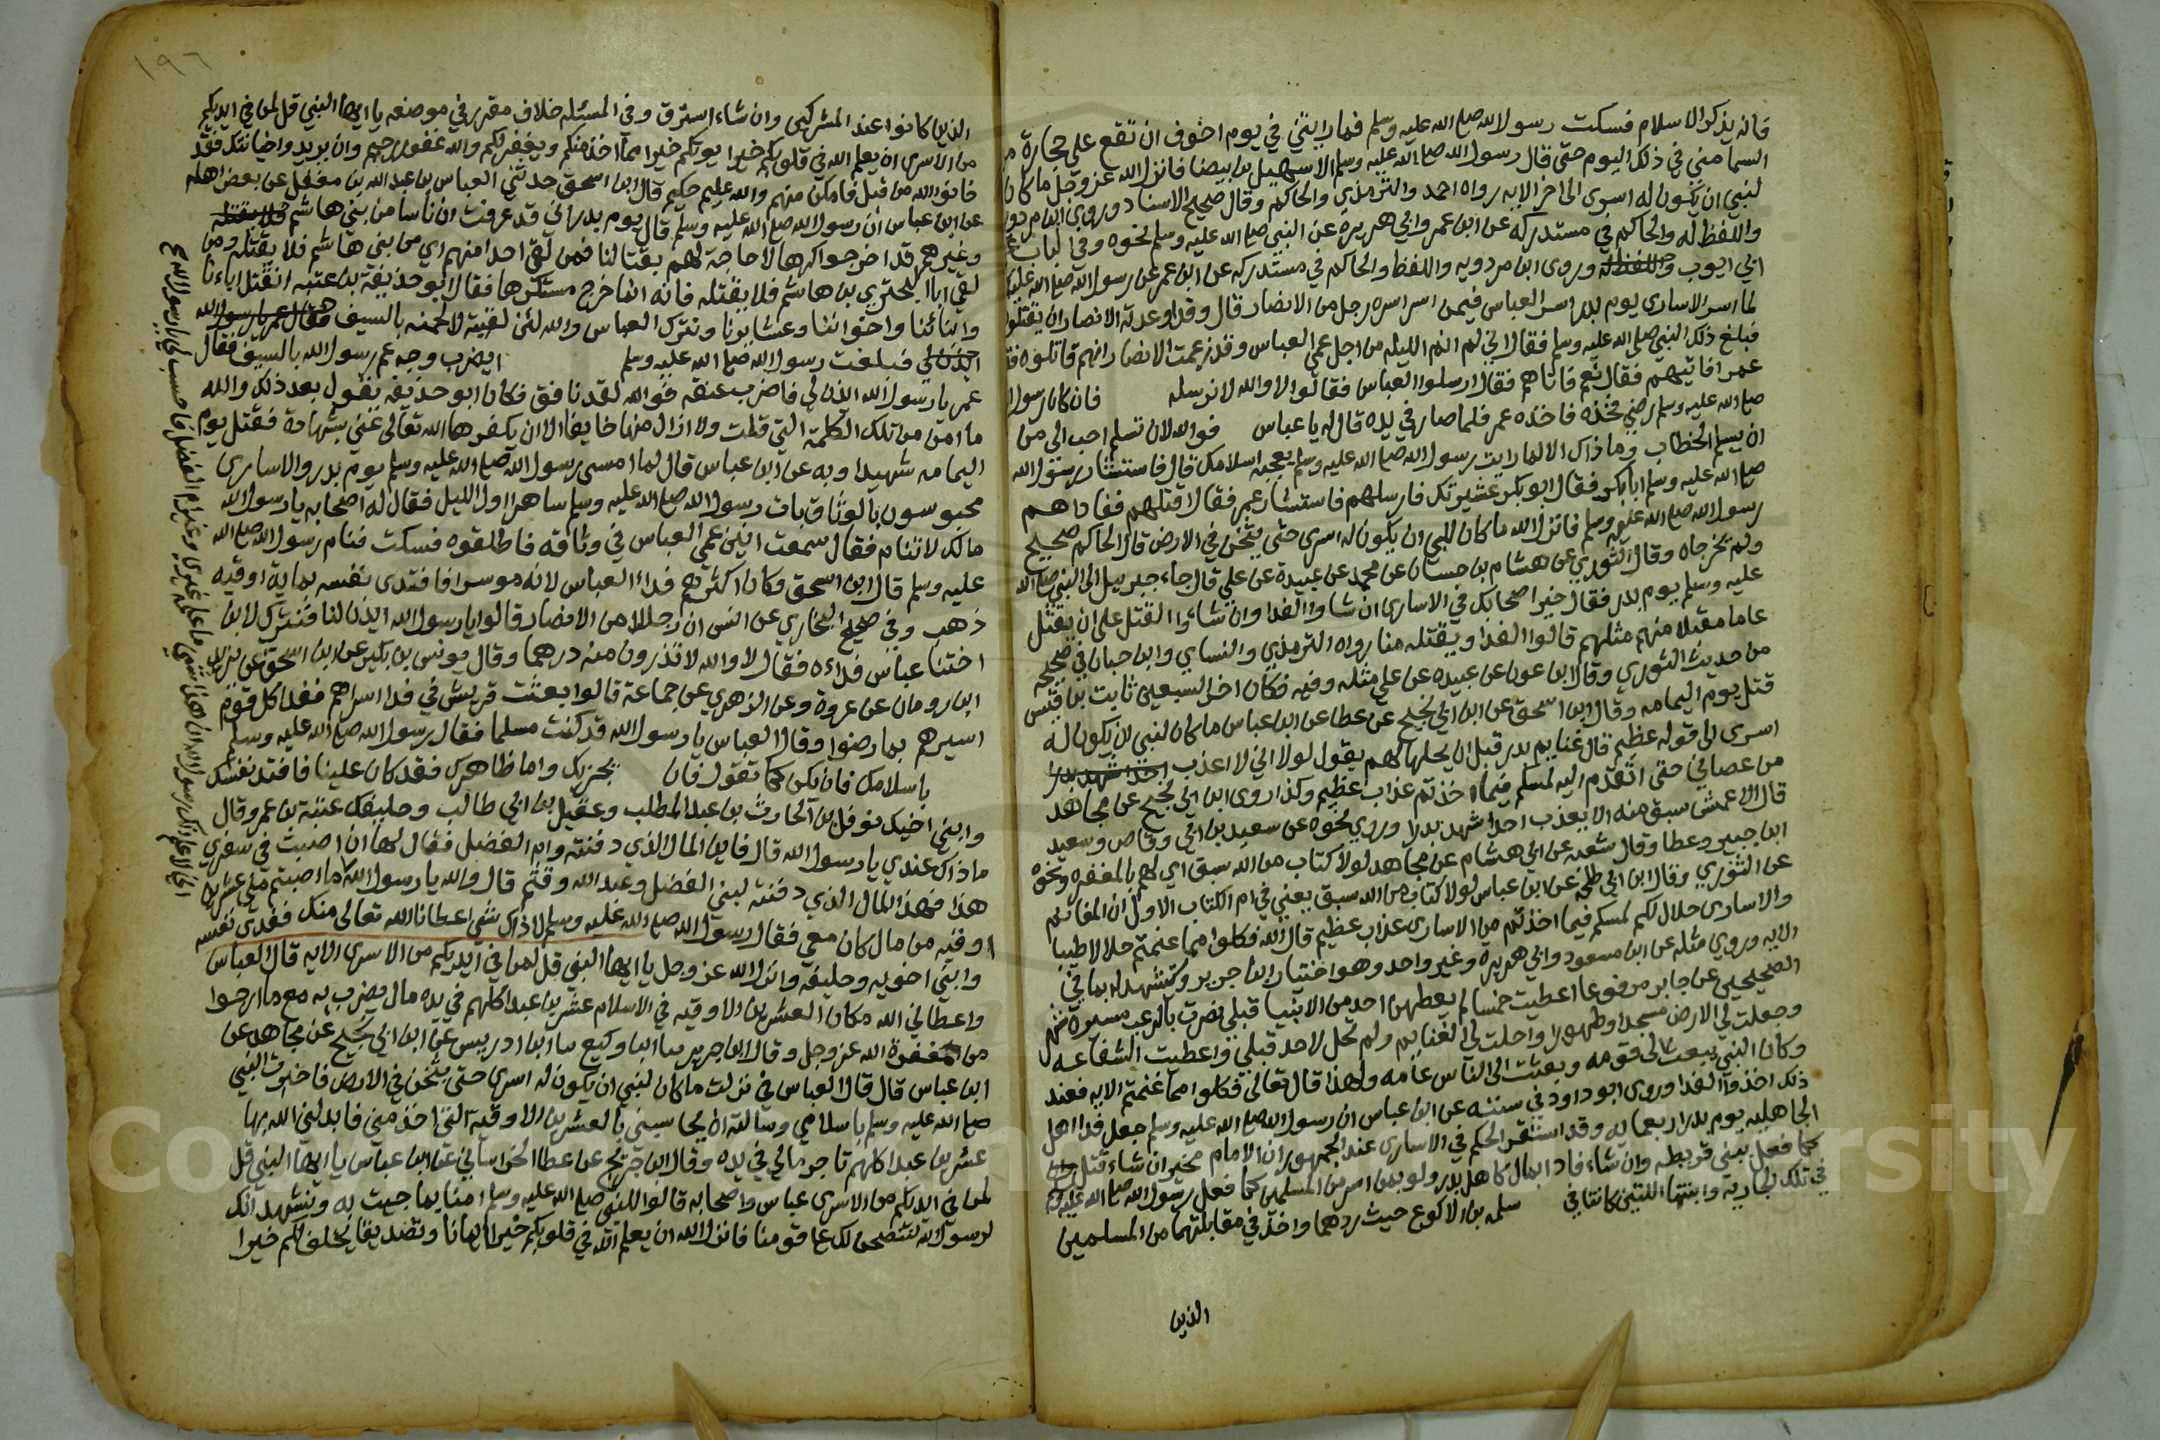 فانه يذكر الاسلام فسكت رسول الله صلى الله عليه وسلم فما رايتني في يوم اخوف ان تقع علي حجارة من
السما مني في ذلك اليوم حتى قال رسول الله صلى الله عليه وسلم الا سهيل بن بيضا فانزل الله عز وجل ما كان
لنبي ان يكون له اسرى الى اخر الايه رواه احمد والترمذي والحاكم وقال صحيح الاسناد وروى ابن مردويه
واللفظ له والحاكم في مستدركه عن ابن عمر وابي هريرة عن النبي صلى الله عليه وسلم نحوه وفي الباب عن
ابي ايوب وروى ابن مردويه واللفظ والحاكم في مستدركه عن ابن عمر عن رسول الله صلى الله عليه
لما اسر الاسارى يوم بدر اسر العباس فيمن اسر اسره رجل من الانصار قال وقد اوعدته الانصار ان يقتلوه
فبلغ ذلك النبي صلى الله عليه وسلم فقال اني لم انم الليله من اجل عمي العباس وقد زعمت الانصار انهم قاتلوه فقال
عمر افاتيهم فقال نعم فاتاهم فقال ارسلوا العباس فقالوا لا والله لا نرسله فان كان رسول الله
صلى الله عليه وسلم رضي فخذه فاخذه عمر فلما صار في يده قال له يا عباس فوالله لان تسلم احب الي من
ان يسلم الخطاب وما ذاك الا لما رايت رسول الله صلى الله عليه وسلم يعجبه اسلامك قال فاستشار رسول الله
صلى الله عليه وسلم ابا بكر فقال ابو بكر عشيرتك فارسلهم فاستشار عمر فقال اقتلهم ففاداهم
رسول الله صلى الله عليه وسلم فانزل الله ما كان للنبي ان يكون له اسرى حتى يثخن في الارض قال الحاكم صحيح
ولم يخرجاه وقال الثوري عن هشام بن حسان عن محمد عن عبيدة عن علي قال جاء جبريل الى النبي صلى الله
عليه وسلم يوم بدر فقال خير اصحابك في الاسارى ان شاوا الفدا وان شاءوا القتل على ان يقتل
عاما مقبلا منهم مثلهم قالوا الفدا ويقتل منا رواه الترمذي والنسايي وابن حبان في صحيحه
من حديث الثوري وقال ابن عون عن عبيده عن علي مثله وفيه فكان اخر السبعين ثابت بن قيس
قتل يوم اليمامه وقال ابن اسحق عن ابن ابي نجيح عن عطا عن ابن عباس ما كان لنبي ان يكون له
اسرى الى قوله عظيم قال غنايم بدر قبل ان يحلها لهم يقول لولا اني لا اعذب
من عصاني حتى اتقدم اليه لمسكم فيما اخذتم عذاب عظيم وكذا روى ابن ابي نجيح عن مجاهد
قال الاعمش سبق منه الا يعذب احدا شهد بدرا وروي نحوه عن سعيد بن ابي وقاص وسعيد
ابن جبير وعطا وقال شعبه عن ابي هشام عن مجاهد لولا كتاب من الله سبق اي لهم بالمغفره ونحوه
عن الثوري وقال ابن ابي طلحه عن ابن عباس لولا كتاب من الله سبق يعني في ام الكتاب الاول ان المغانم
والاسارى حلال لكم لمسكم فيما اخذتم من الاسارى عذاب عظيم قال الله فكلوا مما غنمتم حلالا طيبا
الايه وروي مثله عن ابن مسعود وابي هريره وغير واحد وهو اختيار ابن جرير ويستشهد لهم بما في
الصحيحين عن جابر مرفوعا اعطيت خمسا لم يعطهن احد من الانبيا قبلي نصرت بالرعب مسيرة شهر
وجعلت لي الارض مسجدا وطهورا واحلت لي الغنايم ولم تحل لاحد قبلي واعطيت الشفاعه
وكان النبي يبعث الى قومه وبعثت الى الناس عامه ولهذا قال تعالى فكلوا مما غنمتم الايه فعند
ذلك اخذوا الفدا وروى ابو داود في سننه عن ابن عباس ان رسول الله صلى الله عليه وسلم جعل فدا اهل
الجاهليه يوم بدر اربعمايه وقد استقر الحكم في الاسارى عند الجمهور ان الامام مخير ان شاء قتل
كما فعل ببني قريظه وان شاء فادا بمال كاهل بدر ولو بمن اسر من المسلمين كما فعل رسول الله صلى الله عليه وسلم
في تلك الجاريه وابنتها اللتين كانتا في سلمه بن الاكوع حيث ردهما واخذ في مقابلتهما من المسلمين
الذين
١٩٦
الذين كانوا عند المشركين وان شاء استرق وفي المسئله خلاف مقرر في موضعه يا ايها النبي قل لمن في ايديكم
من الاسرى ان يعلم الله في قلوبكم خيرا يوتكم خيرا مما اخذ منكم ويغفر لكم والله غفور رحيم وان يريدوا خيانتك فقد
خانوا الله من قبل فامكن منهم والله عليم حكيم قال ابن اسحق حدثني العباس بن عبد الله بن مغفل عن بعض اهله
عن ابن عباس ان رسول الله صلى الله عليه وسلم قال يوم بدر اني قد عرفت ان ناسا من بني هاشم
وغيرهم قد اخرجوا كرها لا حاجة لهم بقتالنا فمن لقي احدا منهم اي من بني هاشم فلا يقتله ومن
لقي ابا البختري بن هاشم فلا يقتله فانه انما خرج مستكرها فقال ابو حذيفة بن عتبه انقتل اباءنا
وابنائنا واخواننا وعشايرنا ونترك العباس والله لئن لقيته لالجمنه بالسيف
فبلغت رسول الله صلى الله عليه وسلم ايضرب وجه عم رسول الله بالسيف فقال
عمر يا رسول الله ائذن لي فاضرب عنقه فوالله لقد نافق فكان ابو حذيفه يقول بعد ذلك والله
ما امن من تلك الكلمة التي قلت ولا ازال منها خايفا الا ان يكفرها الله تعالى عني بشهادة فقتل يوم
اليمامه شهيدا وبه عن ابن عباس قال لما امسى رسول الله صلى الله عليه وسلم يوم بدر والاسارى
محبوسون بالوثاق بات رسول الله صلى الله عليه وسلم ساهرا اول الليل فقال له اصحابه يا رسول الله
مالك لا تنام فقال سمعت انين عمي العباس في وثاقه فاطلقوه فسكت فنام رسول الله صلى الله
عليه وسلم قال ابن اسحق وكان اكثرهم فداءا العباس لانه موسرا فافتدى نفسه بماية اوقيه
ذهب وفي صحيح البخاري عن انس ان رجالا من الانصار قالوا يا رسول الله ائذن لنا فنترك لابن
اختنا عباس فداءه فقال لا والله لا تذرون منه درهما وقال يونس بن بكير عن ابن اسحق عن يزيد
ابن رومان عن عروة وعن الزهري عن جماعة قالوا بعثت قريش في فدا اسراهم ففدا كل قوم
اسيرهم بما رضوا وقال العباس يا رسول الله قد كنت مسلما فقال رسول الله صلى الله عليه وسلم
باسلامك فان يكن كما تقول فان يجزيك واما ظاهرك فقد كان علينا فافتد نفسك
وابني اخيك نوفل بن الحارث بن عبد المطلب وعقيل بن ابي طالب وحليفك عتبة بن عمر وقال
ما ذاك عندي يا رسول الله قال فاين المال الذي دفنته وام الفضل فقال لها ان اصبت في سفري
هذا فهذا المال الذي دفنته لبني الفضل وعبد الله وقثم قال والله يا رسول الله ما اصبتم مني عشرين
اوقيه من مال كان معي فقال رسول الله صلى الله عليه وسلم لا ذاك شي اعطانا الله تعالى منك ففدى نفسه
وابني اخويه وحليفه وانزل الله عز وجل يا ايها النبي قل لمن في ايديكم من الاسرى الايه قال العباس
واعطاني الله مكان العشرين الاوقيه في الاسلام عشرين عبدا كلهم في يده مال يضرب به مع ما ارجوا
من مغفرة الله عز وجل وقال ابن جرير ابن وكيع ابن ادريس عن ابن ابي نجيح عن مجاهد عن
ابن عباس قال قال العباس في نزلت ما كان لنبي ان يكون له اسرى حتى يثخن في الارض فاخبرت النبي
صلى الله عليه وسلم باسلامي وسالته ان يحاسبني بالعشرين الاوقية التي اخذ مني فابدلني الله بها
عشرين عبدا كلهم تاجر مالي في يده وقال ابن جريج عن عطا الخراساني عن ابن عباس يا ايها النبي قل
لمن في ايديكم من الاسرى عباس واصحابه قالوا للنبي صلى الله عليه وسلم امنا بما جيت به ونشهد انك
لرسول الله لننصحن لك على قومنا فانزل الله ان يعلم الله في قلوبكم خيرا ايمانا وتصديقا يخلف لكم خيرا
اني لاعلم انك رسول الله ان هذا شي ما علمه غيري وغير ام الفضل فاحسب لي يا رسول الله صح